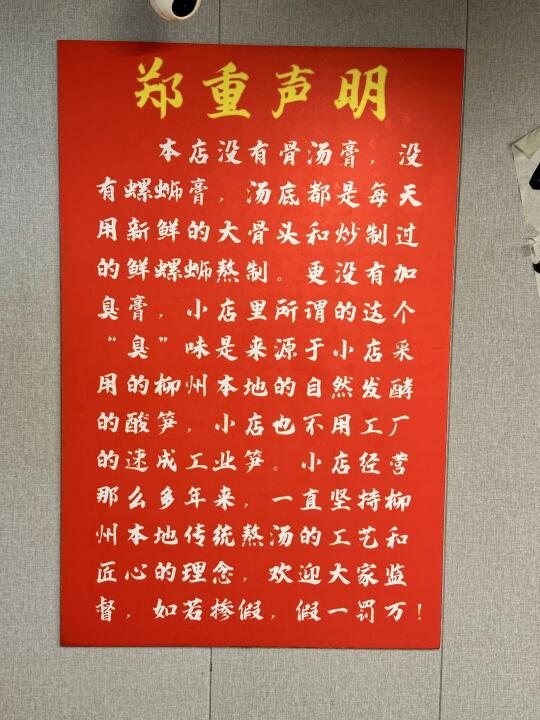 郑重声明
本店没有骨汤膏，没
有螺蛳膏，汤底都是每天
用新鲜的大骨头和炒制过
的鲜螺蛳熬制。更没有加
臭膏，小店里所谓的达个
“臭”味是来源于小店采
用的柳州本地的自然发酵
的酸笋，小店也不用工厂
的速成工业笋。小店经营
那么多年来，一直坚持柳
州本地传统熬汤的工艺和
匠心的理念，欢迎大家监
督，如若掺假，假一罚万！